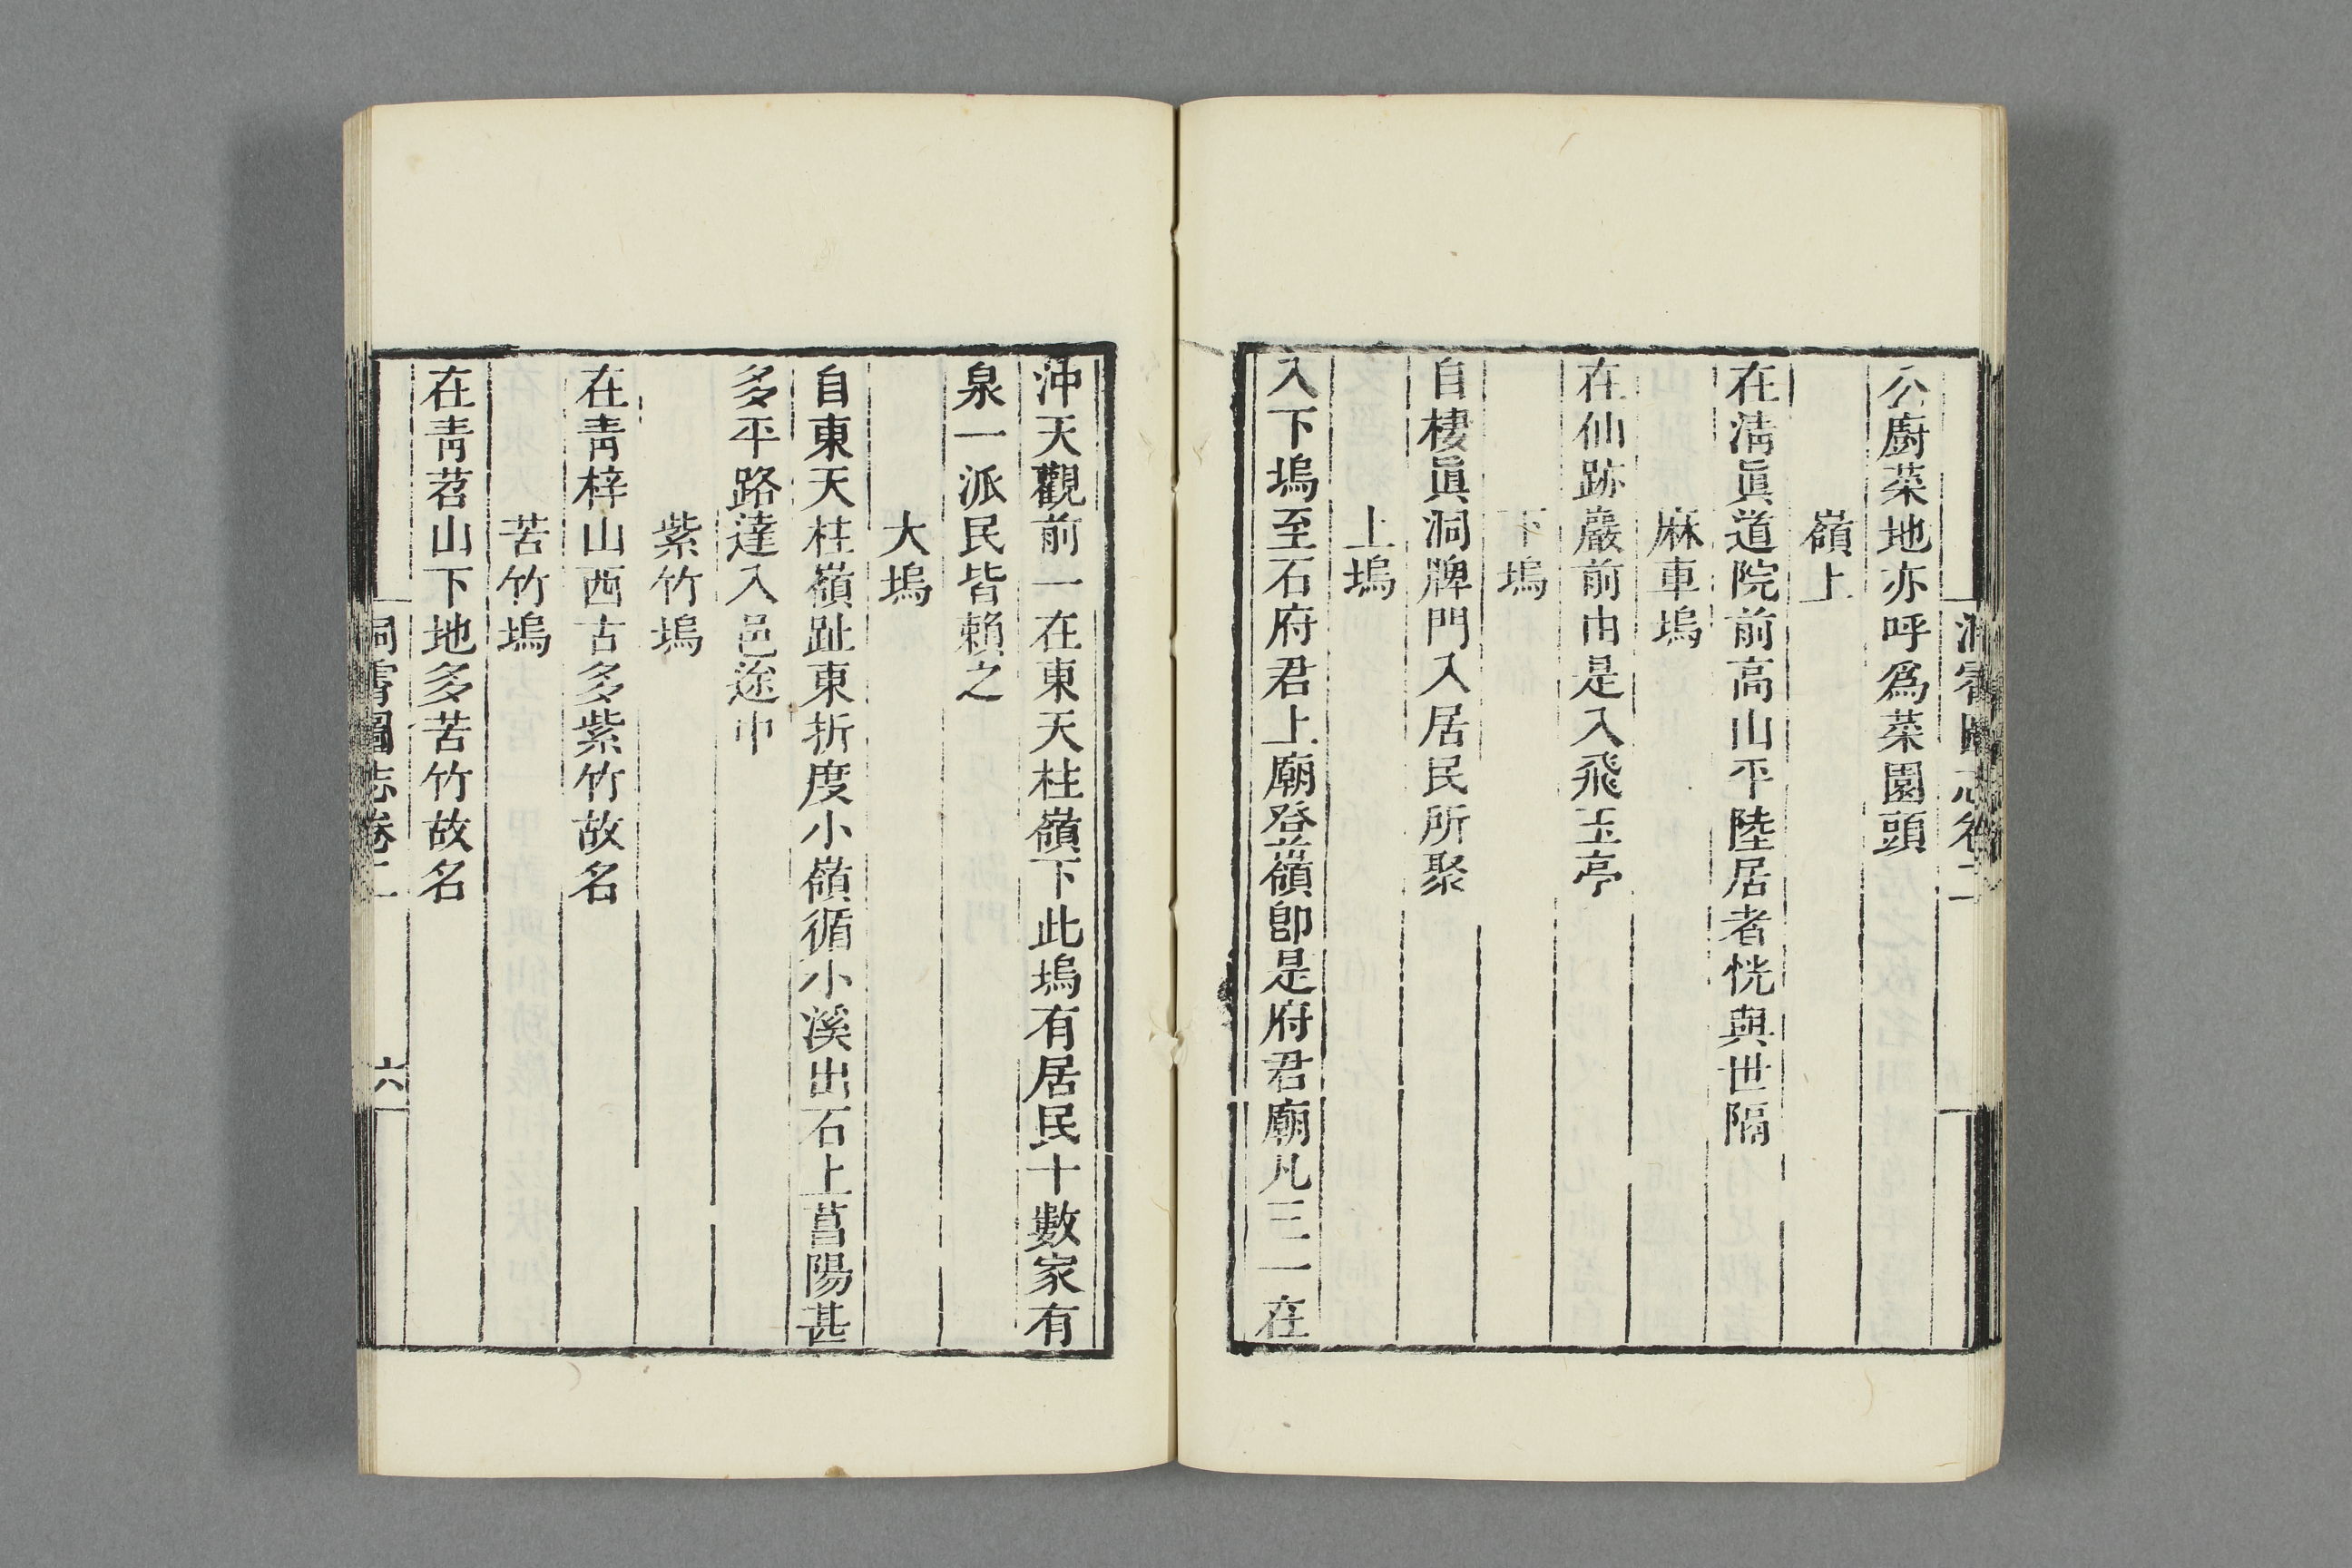 洞霄圖志卷二
公廚菜地亦呼爲菜園頭
嶺上
在淸眞道院前高山平陸居者恍與世隔
麻車塢
在仙跡巖前由是入飛玉亭
下塢
自棲眞洞牌門入居民所聚
上塢
入下塢至石府君上廟登嶺卽是府君廟凡三一在
沖天觀前一在東天柱嶺下此塢有居民十數家有
泉一派民皆賴之
大塢
自東天柱嶺趾東折度小嶺循小溪出石上菖陽甚
多平路達入邑途中
紫竹塢
在靑梓山西古多紫竹故名
苦竹塢
在靑苕山下地多苦竹故名
洞霄圖志卷二
六